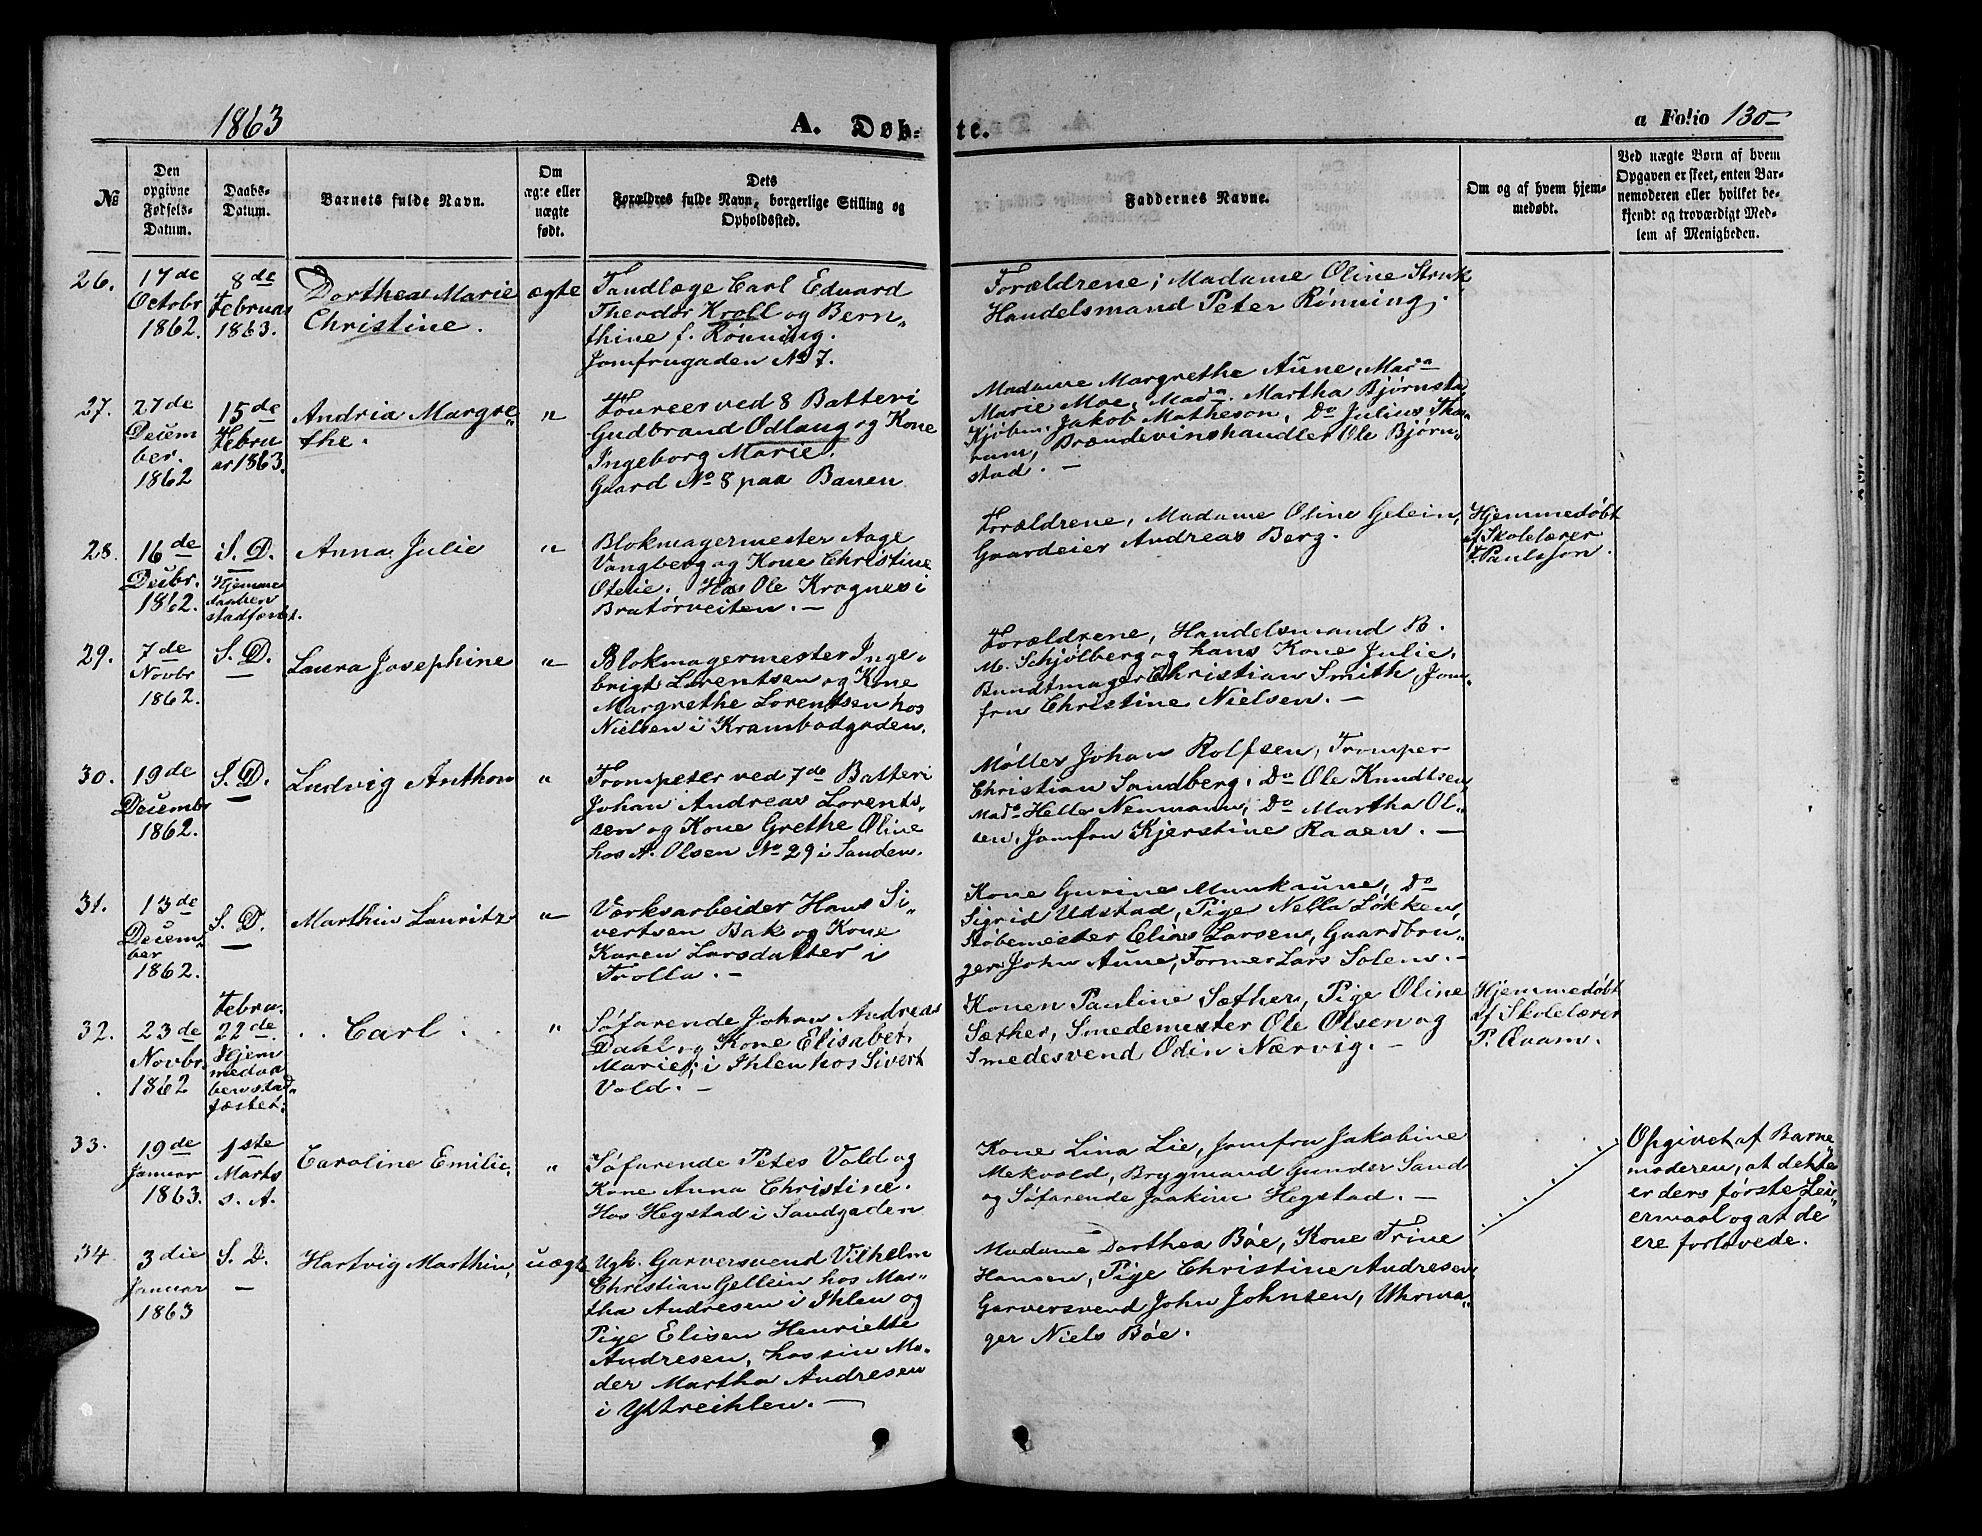 1863
A. Døb-
te.
a Folio 130
№
Den
opgivne
Fødsels-
Datum.
Daabs-
Datum.
Barnets fulde Navn.
Om
ægte eller
uægte
født.
Dets
Forældres fulde Navn, borgerlige Stilling og
Opholdssted.
Faddernes Navne.
Om og af hvem hjem-
medøbt.
Ved uægte Børn af hvem
Opgaven er skeet, enten Bar-
nemoderen eller hvilket be-
kjendt og troværdigt Med-
lem af Menigheden.
26.
17de
Octobr
1862.
8de
Februar
1863.
Dorthea Marie
Christine.
ægte
Tandlæge Carl Eduard
Theodor Kroll og Bern„
thine f. Rønning.
Jomfrugaden No 7.
Forældrene; Madame Oline Struk
Handelsmand Peter Rønning.
27.
27de
Decem
ber.
1862
15de
Febru
ar 1863.
Andria Margre„
the.
„
Foureer ved 8 Batteri
Gudbrand Odlaug og Kone
Ingeborg Marie.
Gaard No 8 paa Banen
Madame Margrethe Aune, Mada
Marie Moe, Mada. Martha Bjørnsta
Kjøbm. Jakob Matheson, Do Julius Tho
rum, Brændevinshandler Ole Bjørn„
stad. —
28.
16de
Decbr.
1862.
S. D.
Hjemme
daaben
stadfæstet.
Anna Julie
„
Blokmagermester Aage
Vangberg og Kone Christine
Otelie. Hos Ole Kragnes i
Bratørveiten. —
Forældrene, Madame Oline Gelein,
Gaardeier Andreas Berg.
Hjemmedøbt
af Skolelærer
Paulsson.
29.
7de
Novbr
1862.
S. D.
Laura Josephine
„
Blokmagermester Inge„
brigt Lorentsen og Kone
Margrethe Lorentsen hos
Nielsen i Krambodgaden.
Forældrene, Handelsmand B.
M. Schjølberg og hans Kone Julie,
Bundtmager Christian Smith, Jom„
fru Christine Nielsen. —
30.
19de
Decembr
1862.
S. D.
Ludvig Anthon
„
Trompeter ved 7de Batteri
Johan Andreas Lorents„
sen og Kone Grethe Oline
hos A. Olsen No 29 i Sanden.
Møller Johan Rolfsen, Tromper
Christian Sandberg, Do Ole Knudtsen,
Mado Helle Neumann, Do Martha Ol„
sen, Jomfru Kjerstine Raaen. —
31.
13de
Decem„
ber
1862.
S. D.
Marthin Lauritz
„
Værksarbeider Hans Si„
vertsen Bak og Kone
Karen Larsdatter i
Trolla. —
Kone Gurine Munkaune, Do
Sigrid Udstad, Pige Nella Løkken,
Støbemester Elias Larsen, Gaardbru„
ger John Aune, Former Lars Solem. —
32.
23de
Novbr.
1862
Febru.
22de
Hjem
medaa
ben stad„
fæstet.
Carl
„
Søfarende Johan Andreas
Dahl og Kone Elisabet
Marie; i Ihlen hos Sivert
Vold. —
Konen Pauline Sæther, Pige Oline
Sæther, Smedemester Ole Olsen og
Smedesvend Odin Nærvig. —
Hjemmedøbt
af Skolelærer
P. Qvam.
33.
19de
Januar
1863.
1ste
Marts
s. A.
Caroline Emilie,
„
Søfarende Peter Vold og
Kone Anna Christine.
Hos Hegstad i Sandgaden
Kone Lina Lie, Jomfru Jakobine
Mekvold, Brygmand Gunder Sand
og Søfarende Joakim Hegstad. —
34.
3die
Januar
1863
S. D.
—
Hartvig Marthin,
uægte
Ugh. Garversvend Vilhelm
Christian Gellein hos Mar„
tha Andresen i Ihlen og
Pige Elisen Henriette
Andresen, hos sin Mo„
der Martha Andresen
i Ytreihlen. —
Madame Dorthea Bøe, Kone Trine
Hansen, Pige Christine Andresen
Garversvend John Johnsen, Uhrma„
ger Niels Bøe.
Opgivet af Barne
moderen, at dette
er deres første Lei„
ermaal og at de
ere forlovede.